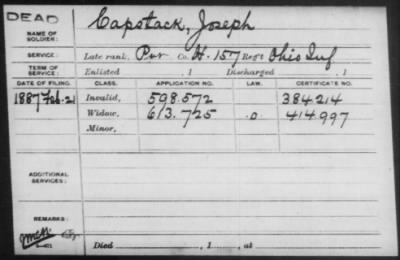 DEAD
NAME OF SOLDIER: Capstack, Joseph
SERVICE: Late rank, Pvt Co. H. 157 Reg't Ohio Inf
TERM OF SERVICE: Enlisted , 1 Discharged , 1
DATE OF FILING. CLASS. APPLICATION NO. LAW. CERTIFICATE NO.
1887 Feb. 21 Invalid, 598.572 384.214
Widow, 613.725 O. 414.997
Minor,
ADDITIONAL SERVICES:
REMARKS:
Died , 1 , at